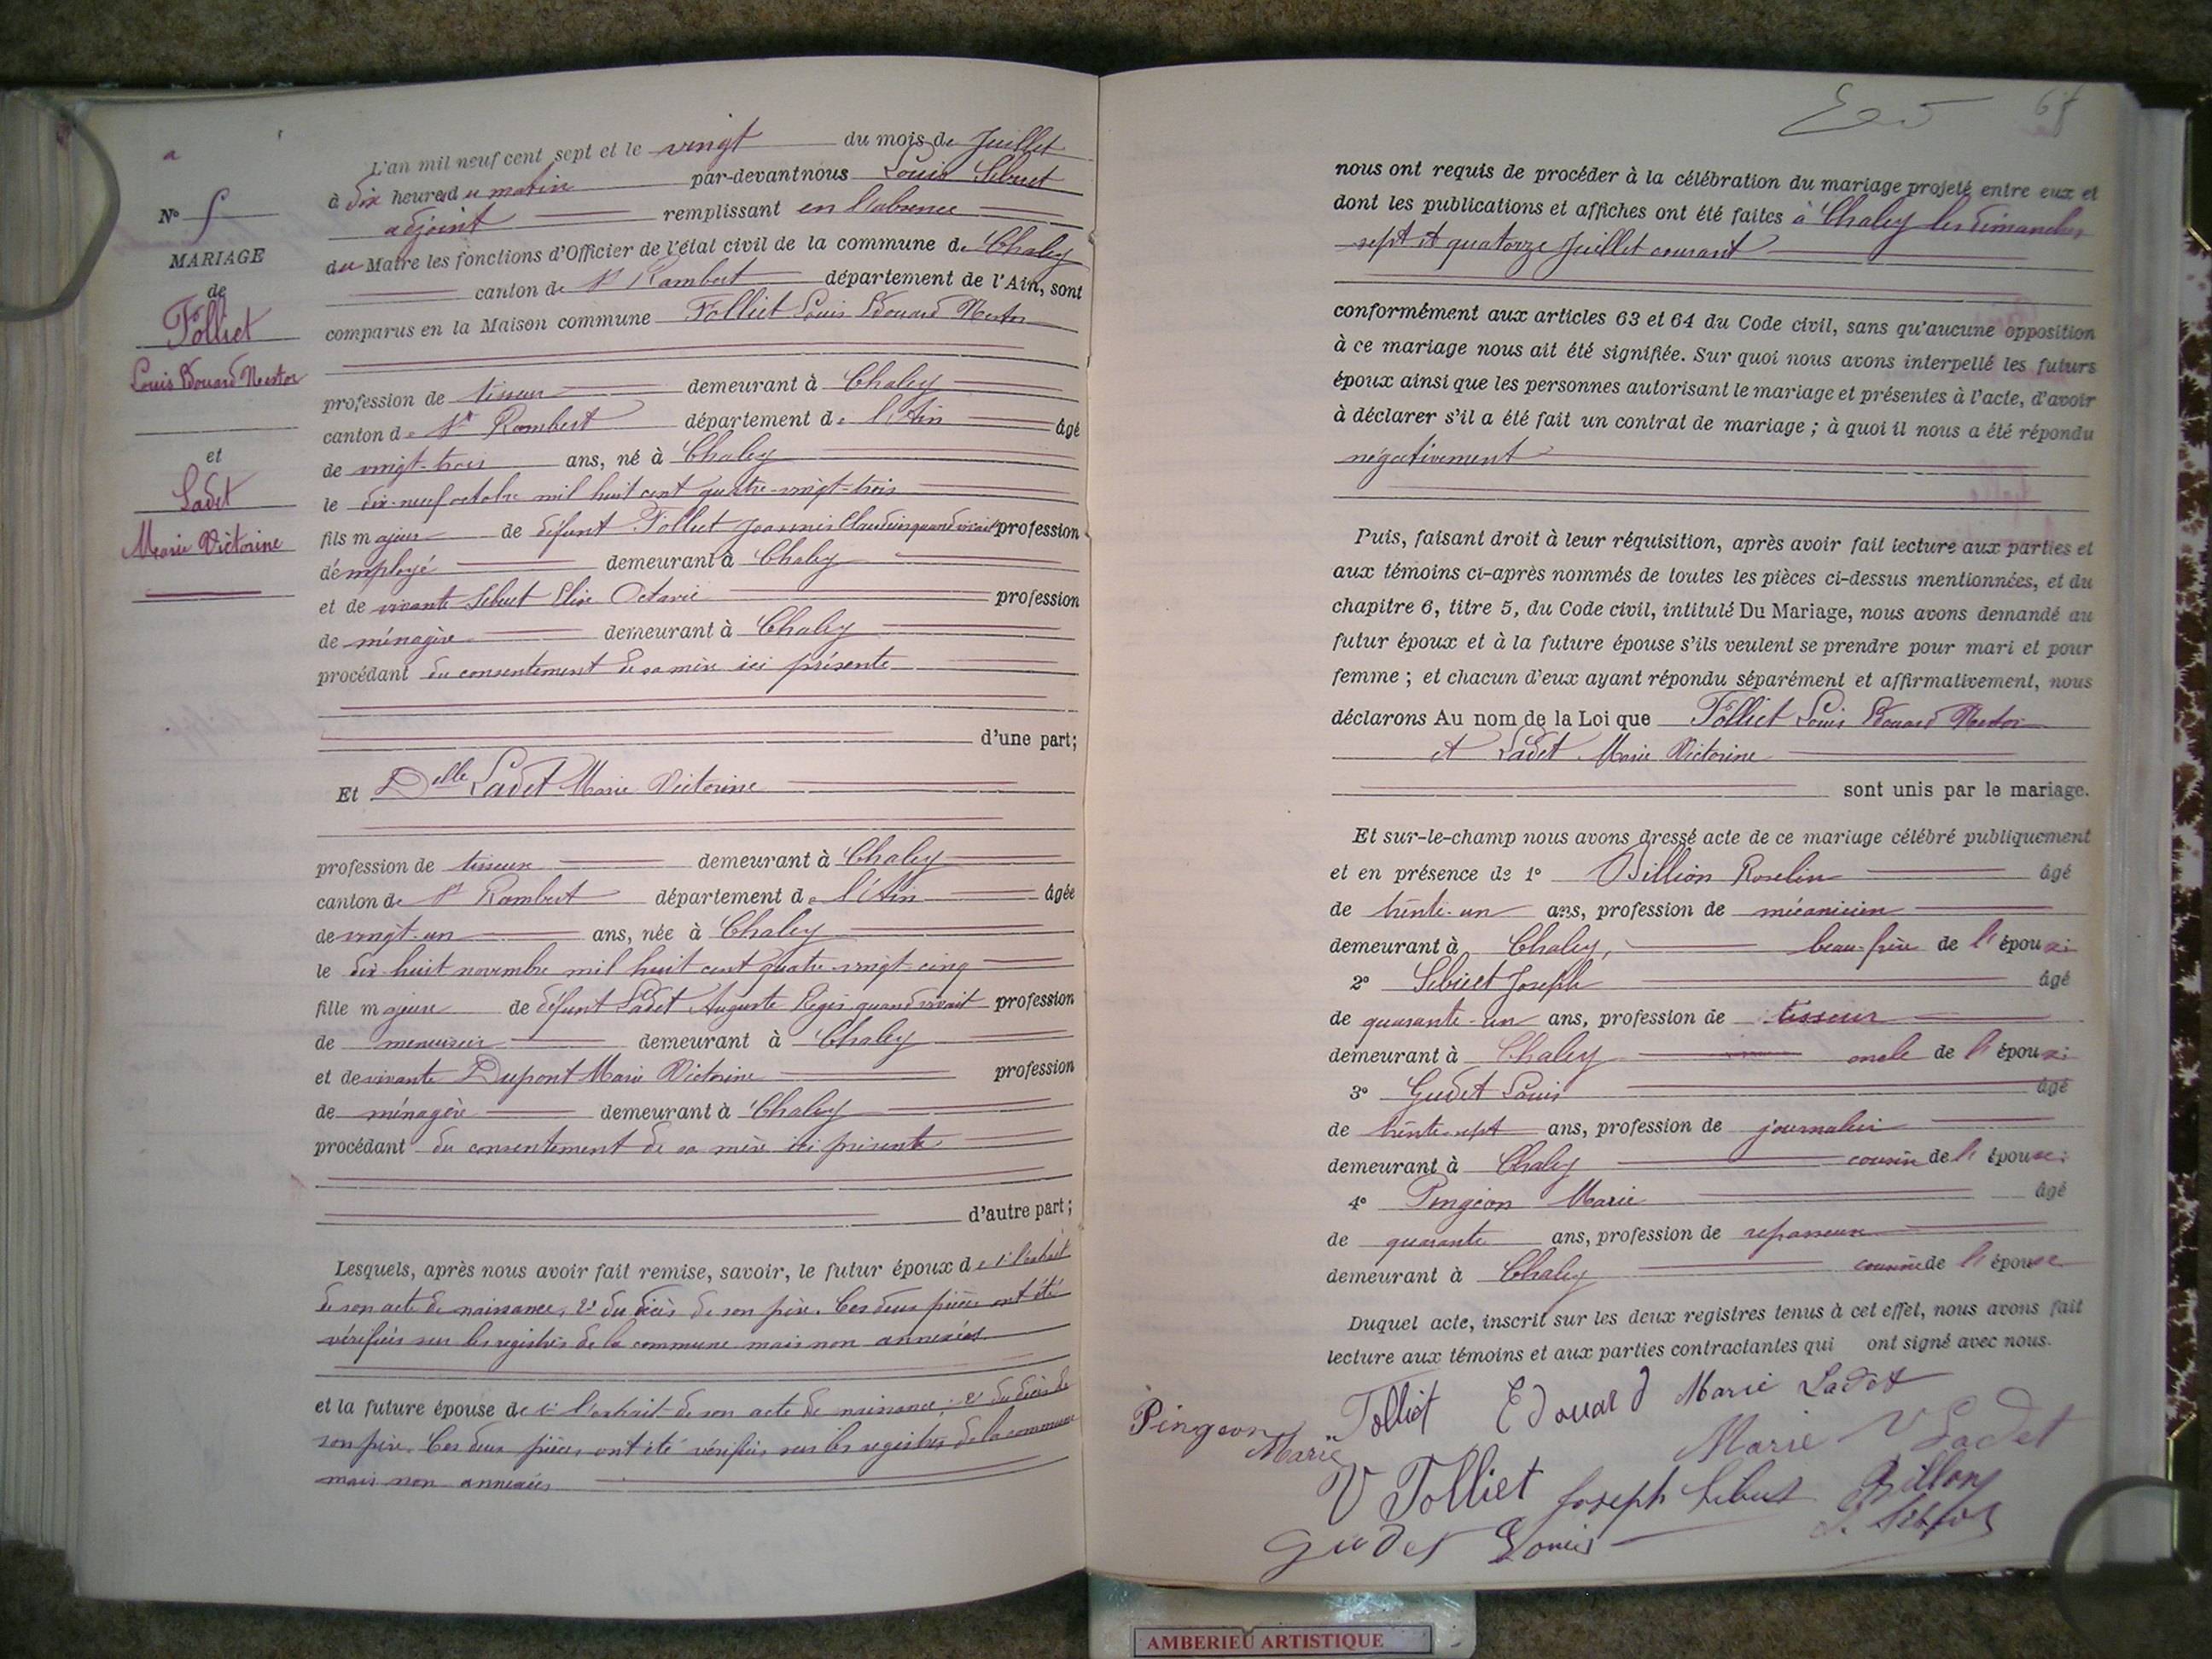 L'an mil neuf cent sept et le vingt du mois de Juillet
à dix heures du matin par-devant nous Louis Sibuet
adjoint remplissant en l'absence
du Maire les fonctions d'Officier de l'état civil de la commune de Chaley
canton de St Rambert département de l'Ain, sont
comparus en la Maison commune Folliet Louis Edouard Nestor
profession de tisseur demeurant à Chaley
canton de St Rambert département de l'Ain âgé
de vingt-trois ans, né à Chaley
le dix-neuf octobre mil huit cent quatre-vingt-trois
fils majeur de défunt Folliet Joannis Claudius quand vivait profession
d'employé demeurant à Chaley
et de vivante Sibuet Elise Octavie profession
de ménagère demeurant à Chaley
procédant du consentement de sa mère ici présente
d'une part;
Et Delle Ladet Marie Victorine
profession de tisseuse demeurant à Chaley
canton de St Rambert département de l'Ain âgée
de vingt-un ans, née à Chaley
le dix-huit novembre mil huit cent quatre-vingt-cinq
fille majeure de défunt Ladet Auguste Régis quand vivait profession
de menuisier demeurant à Chaley
et de vivante Dupont Marie Victorine profession
de ménagère demeurant à Chaley
procédant du consentement de sa mère ici présente
d'autre part;
Lesquels, après nous avoir fait remise, savoir, le futur époux de 1° l'extrait
de son acte de naissance, 2° du décès de son père. Ces deux pièces ont été
vérifiées sur les registres de la commune mais non annexées
et la future épouse de 1° l'extrait de son acte de naissance; 2° du décès de
son père. Ces deux pièces ont été vérifiées sur les registres de la commune
mais non annexées
N° 5
MARIAGE
de
Folliet
Louis Edouard Nestor
et
Ladet
Marie Victorine
67
nous ont requis de procéder à la célébration du mariage projeté entre eux et
dont les publications et affiches ont été faites à Chaley les dimanches
sept et quatorze Juillet courant
conformément aux articles 63 et 64 du Code civil, sans qu'aucune opposition
à ce mariage nous ait été signifiée. Sur quoi nous avons interpellé les futurs
époux ainsi que les personnes autorisant le mariage et présentes à l'acte, d'avoir
à déclarer s'il a été fait un contrat de mariage; à quoi il nous a été répondu
négativement
Puis, faisant droit à leur réquisition, après avoir fait lecture aux parties et
aux témoins ci-après nommés de toutes les pièces ci-dessus mentionnées, et du
chapitre 6, titre 5, du Code civil, intitulé Du Mariage, nous avons demandé au
futur époux et à la future épouse s'ils veulent se prendre pour mari et pour
femme; et chacun d'eux ayant répondu séparément et affirmativement, nous
déclarons Au nom de la Loi que Folliet Louis Edouard Nestor
et Ladet Marie Victorine
sont unis par le mariage.
Et sur-le-champ nous avons dressé acte de ce mariage célébré publiquement
et en présence de 1° Billion Roselin âgé
de trente-un ans, profession de mécanicien
demeurant à Chaley, beau-frère de l'époux;
2° Sibuet Joseph âgé
de quarante-un ans, profession de tisseur
demeurant à Chaley oncle de l'époux;
3° Gudet Louis âgé
de trente-sept ans, profession de journalier
demeurant à Chaley cousin de l'épouse;
4° Pingeon Marie âgé
de quarante ans, profession de repasseuse
demeurant à Chaley cousine de l'épouse
Duquel acte, inscrit sur les deux registres tenus à cet effet, nous avons fait
lecture aux témoins et aux parties contractantes qui ont signé avec nous.
Folliet Edouard Marie Ladet
Pingeon Marie
Marie V Ladet
V Folliet Joseph Sibuet Billion
Gudet Louis L. Sibuet
AMBERIEU ARTISTIQUE